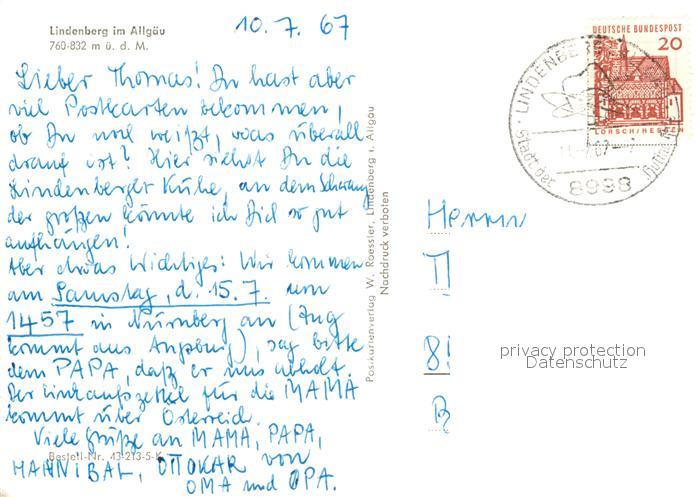 Lindenberg im Allgäu
760-832 m ü. d. M.
10. 7. 67
Lieber Thomas! Du hast aber
viel Postkarten bekommen,
ob Du noch weißt, was überall
drauf ist? Hier siehst Du die
Lindenberger Kühe, an dem Schwanz
der großen könnte ich Dich so gut
aufhängen!
Aber etwas Wichtiges: Wir kommen
am Samstag, d. 15.7. um
1457 in Nürnberg an (Zug
kommt aus Augsburg), sag bitte
dem PAPA, daß er uns abholt.
Der Einkaufszettel für die MAMA
kommt über Österreich.
Viele Grüße an MAMA, PAPA,
HANNIBAL, OTTOKAR von
OMA und OPA.
Bestell-Nr. 43-213-5-K
Postkartenverlag W. Roessler, Lindenberg i. Allgäu
Nachdruck verboten
DEUTSCHE BUNDESPOST
20
LORSCH/HESSEN
LINDENBERG
Stadt der
8998
Herrn
8
privacy protection
Datenschutz